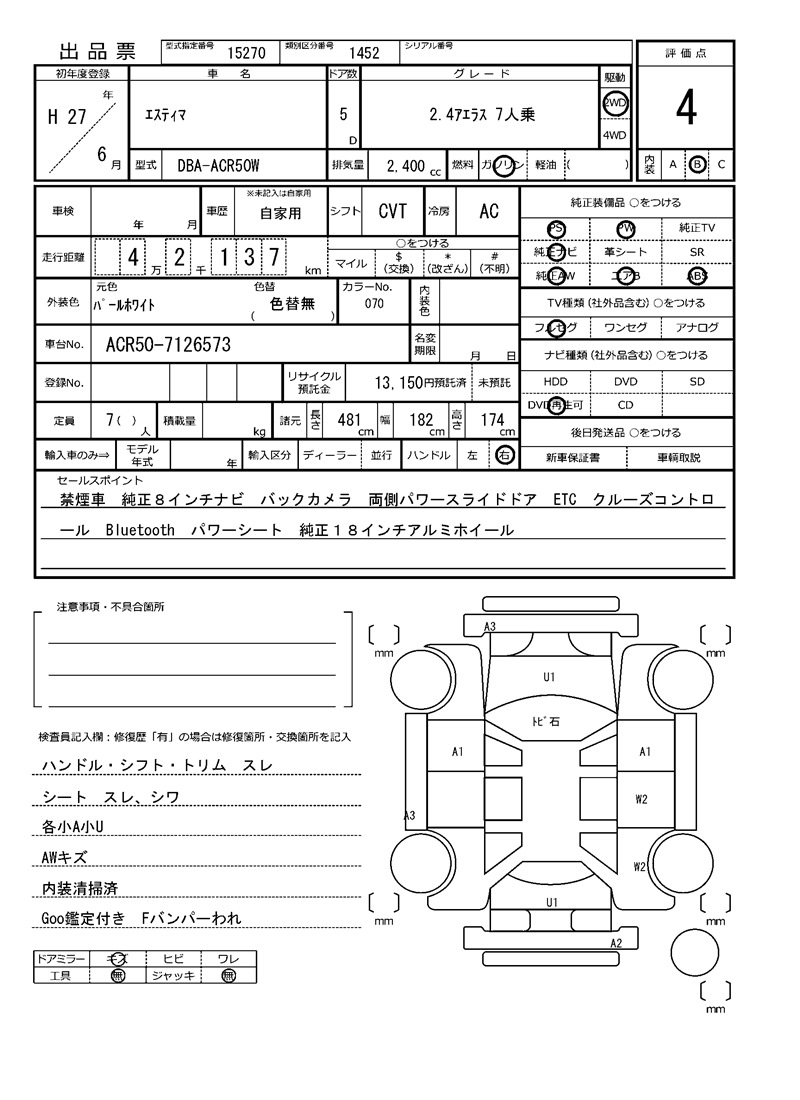 出品票
型式指定番号 15270 類別区分番号 1452 シリアル番号
評価点
初年度登録 車名 ドア数 グレード 駆動
H 27 年
6 月
エスティマ 5 D 2.4アエラス 7人乗 2WD
4WD
4
型式 DBA-ACR50W 排気量 2,400 cc 燃料 ガソリン 軽油 ( )
内装 A B C
車検 年 月 車歴 ※未記入は自家用
自家用 シフト CVT 冷房 AC
走行距離 4 万 2 千 1 3 7 km
○をつける
マイル $(交換) *(改ざん) #(不明)
外装色 元色 パールホワイト 色替 色替無 ( ) カラーNo. 070 内装色
車台No. ACR50-7126573 名変期限 月 日
登録No. リサイクル預託金 13,150円預託済 未預託
定員 7( )人 積載量 kg 諸元 長さ 481 cm 幅 182 cm 高さ 174 cm
輸入車のみ⇒ モデル年式 年 輸入区分 ディーラー 並行 ハンドル 左 右
純正装備品 ○をつける
PS PW 純正TV
純正ナビ 革シート SR
純正AW エアB ABS
TV種類(社外品含む)○をつける
フルセグ ワンセグ アナログ
ナビ種類(社外品含む)○をつける
HDD DVD SD
DVD再生可 CD
後日発送品 ○をつける
新車保証書 車輌取説
セールスポイント
禁煙車 純正８インチナビ バックカメラ 両側パワースライドドア ETC クルーズコントロ
ール Bluetooth パワーシート 純正１８インチアルミホイール
注意事項・不具合箇所
検査員記入欄：修復歴「有」の場合は修復箇所・交換箇所を記入
ハンドル・シフト・トリム スレ
シート スレ、シワ
各小A小U
AWキズ
内装清掃済
Goo鑑定付き Fバンパーわれ
ドアミラー キズ ヒビ ワレ
工具 無 ジャッキ 無
A3
mm mm
U1
トビ石
A1 A1
W2
A3
W2
U1
mm mm
A2
mm